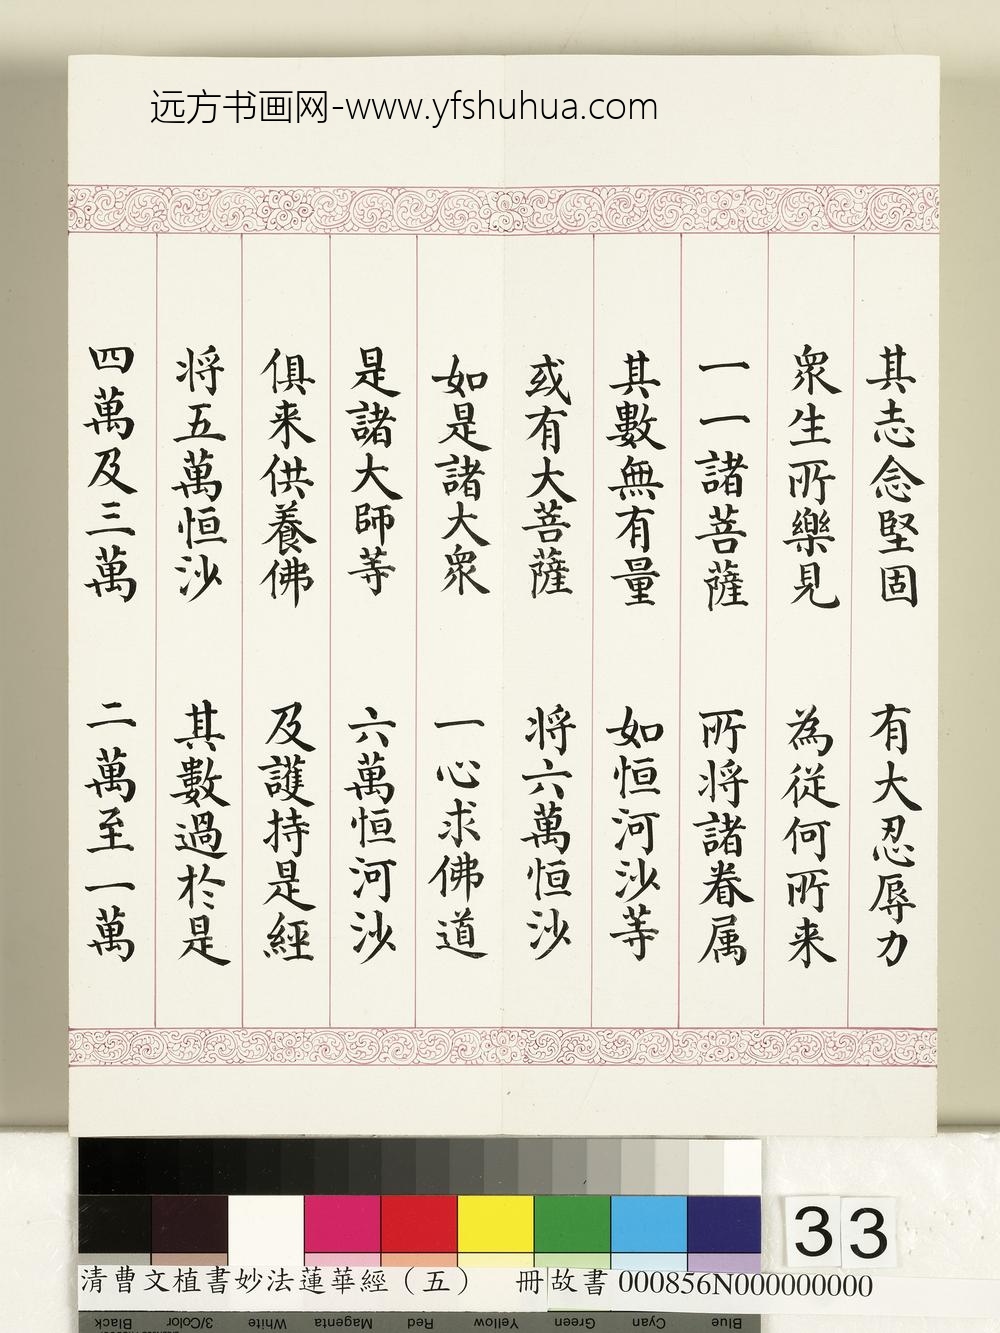 远方书画网-www.yfshuhua.com
其志念堅固 有大忍辱力
衆生所樂見 為從何所来
一一諸菩薩 所將諸眷属
其數無有量 如恒河沙等
或有大菩薩 將六萬恒沙
如是諸大衆 一心求佛道
是諸大師等 六萬恒河沙
俱来供養佛 及護持是經
將五萬恒沙 其數過於是
四萬及三萬 二萬至一萬
33
清曹文植書妙法蓮華經（五） 冊 故書 000856N000000000
Black 3/Color White Magenta Red Yellow Green Cyan Blue